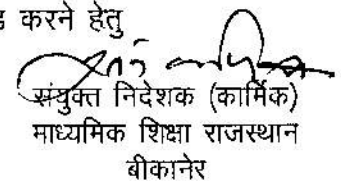 करने हेतु
संयुक्त निदेशक (कार्मिक)
माध्यमिक शिक्षा राजस्थान
बीकानेर